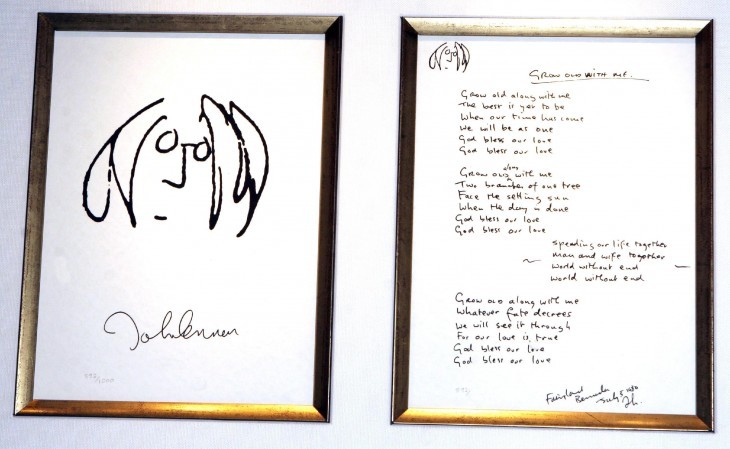 John Lennon
GROW OLD WITH ME.
Grow old along with me
The best is yet to be
When our time has come
We will be as one
God bless our love
God bless our love
Grow old along with me
Two branches of one tree
Face the setting sun
When the day is done
God bless our love
God bless our love
Spending our life together
Man and wife together
World without end
World without end
Grow old along with me
Whatever fate decrees
We will see it through
For our love is true
God bless our love
God bless our love
Fairylands
Bermuda
July 5 1980